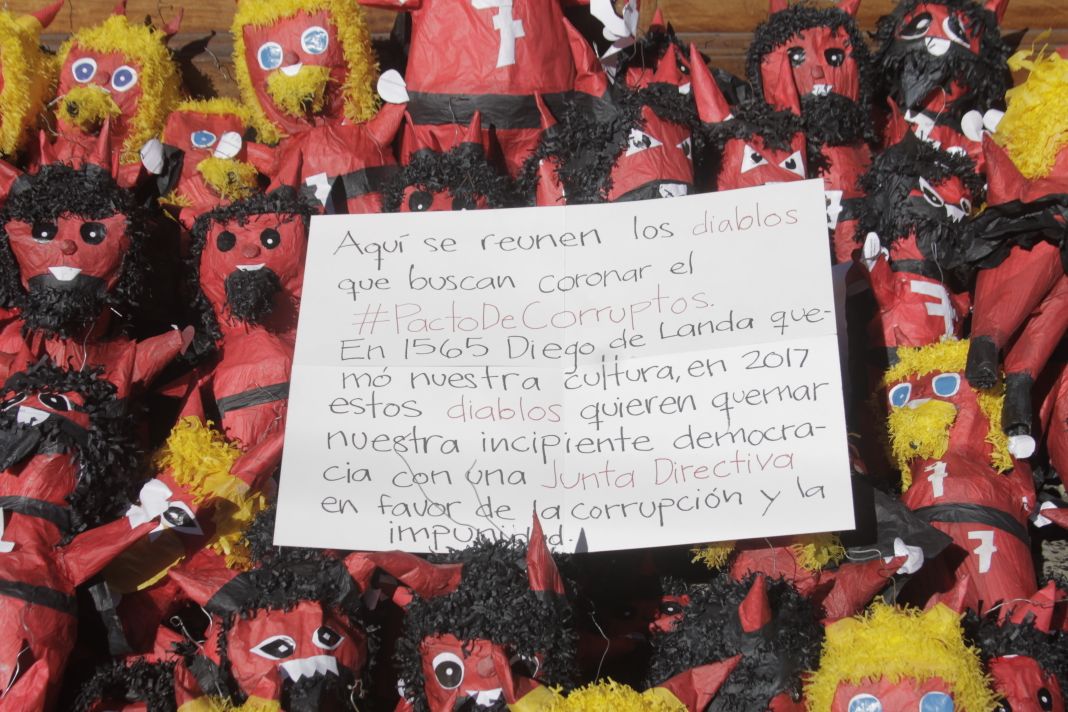 7
Aquí se reunen los diablos
que buscan coronar el
#PactoDeCorruptos.
En 1565 Diego de Landa que-
mó nuestra cultura, en 2017
estos diablos quieren quemar
nuestra incipiente democra-
cia con una Junta Directiva
en favor de la corrupción y la
impunidad.
7
7
7
7
7